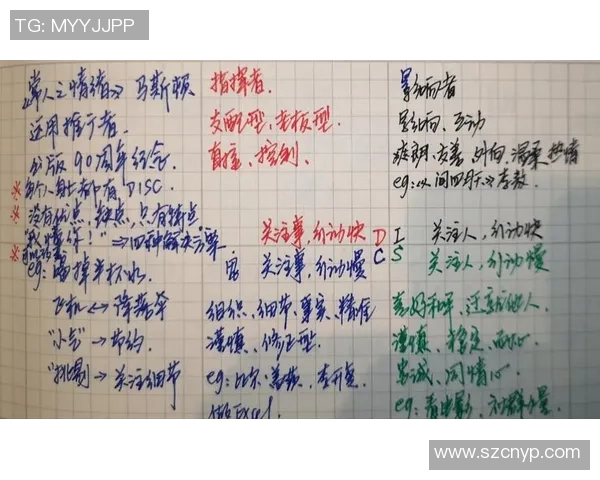 TG: MYYJJPP
《常人之情绪》马斯顿
运用推广者.
出版90周年纪念.
※每个人身上都有DISC.
※没有优点、缺点,只有特点
"我懂你!"→四种解决方案
※
eg: 喝掉半杯水
飞机↔降落伞
"小气"→节约.
"挑剔"→关注细节
指挥者.
支配型,老板型.
直接、控制.
关注事,行动快 D
思 关注事,行动慢 C
组织、细节、事实、精准
谨慎、修正型.
eg: 比尔·盖茨、李开复
做Excel.
影响者
互动
爽朗、友善、外向、温柔、热情
eg:《人间四月天》
I 关注人,行动快
S 关注人,行动慢
喜好和平、
谨慎、稳定、耐心.
忠诚、同情心
eg: 看电影、
www.szcnyp.com